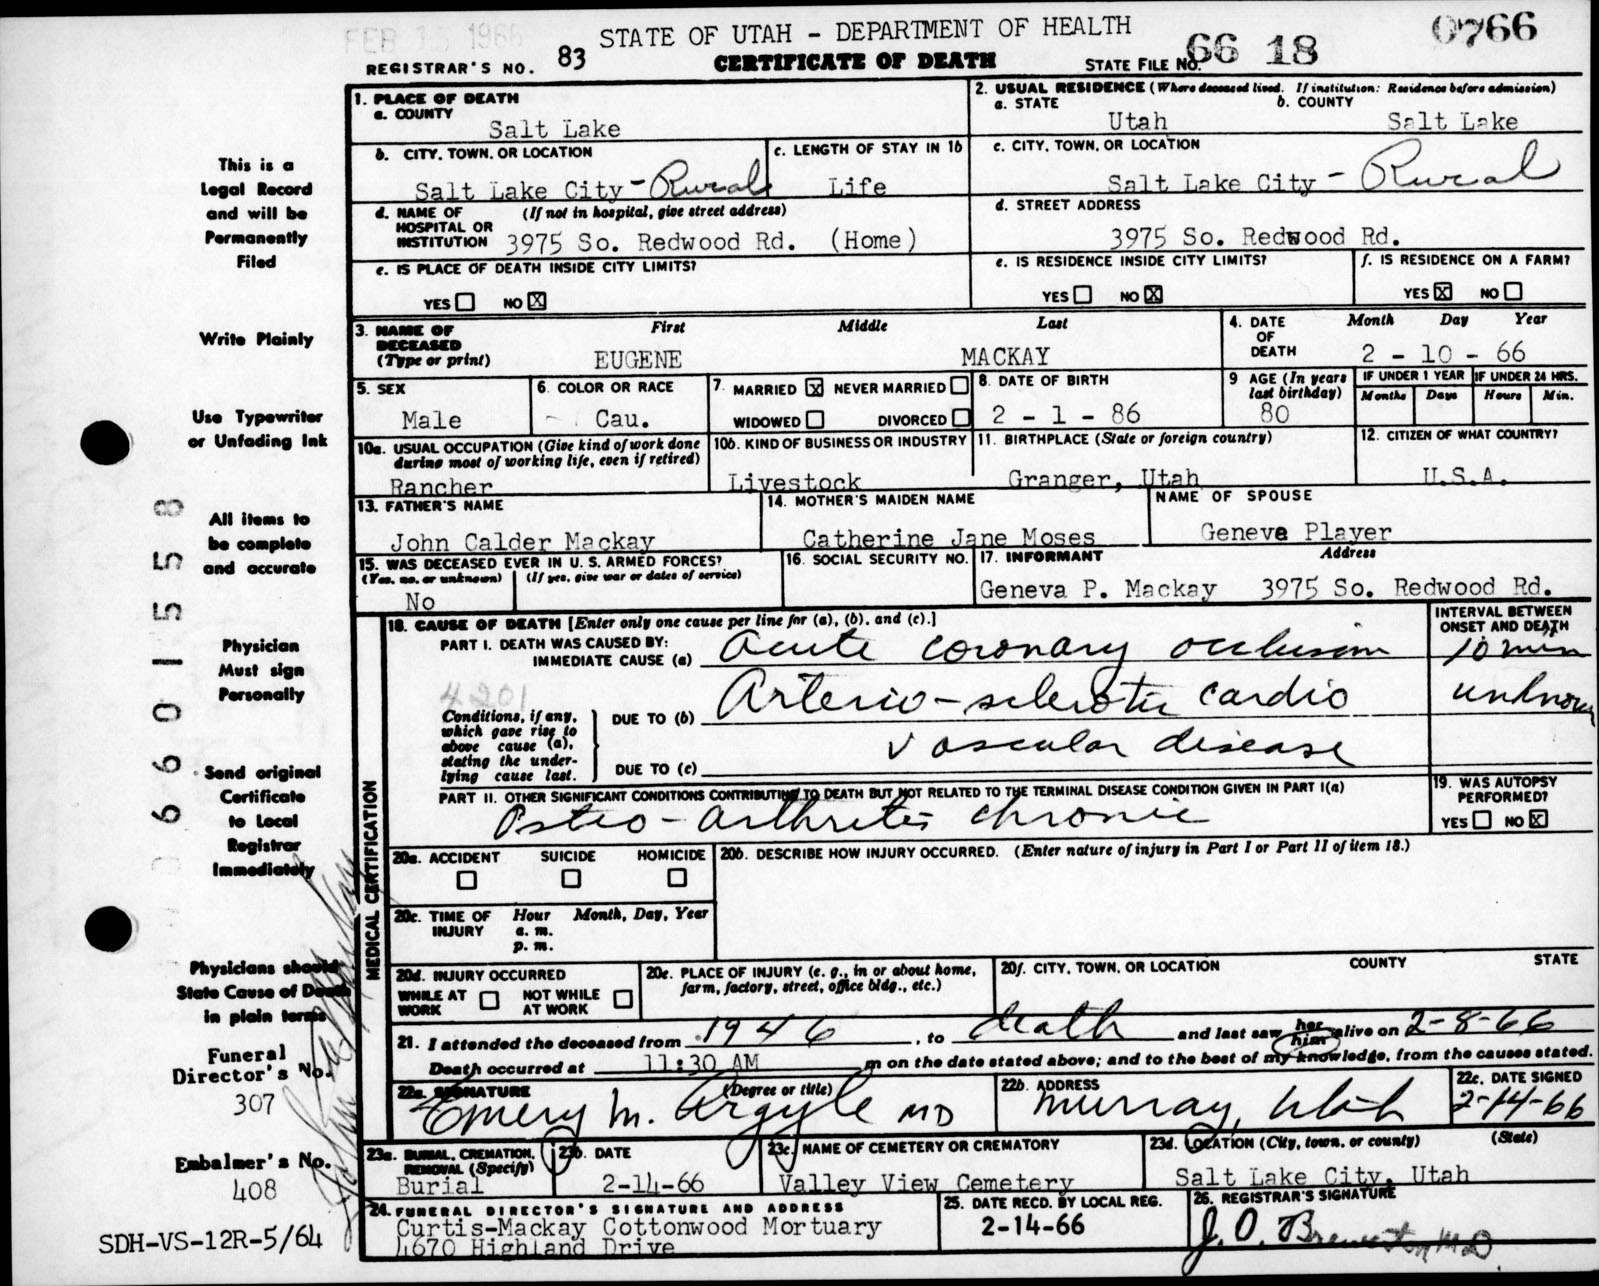 FEB 15 1966
STATE OF UTAH - DEPARTMENT OF HEALTH
0766
REGISTRAR'S NO. 83
CERTIFICATE OF DEATH
STATE FILE NO. 66 18
1. PLACE OF DEATH
a. COUNTY
Salt Lake
2. USUAL RESIDENCE (Where deceased lived. If institution: Residence before admission)
a. STATE b. COUNTY
Utah Salt Lake
b. CITY, TOWN, OR LOCATION
Salt Lake City - Rural
c. LENGTH OF STAY IN 1b
Life
c. CITY, TOWN, OR LOCATION
Salt Lake City - Rural
d. NAME OF HOSPITAL OR INSTITUTION (If not in hospital, give street address)
3975 So. Redwood Rd. (Home)
d. STREET ADDRESS
3975 So. Redwood Rd.
e. IS PLACE OF DEATH INSIDE CITY LIMITS?
YES ☐ NO ☒
e. IS RESIDENCE INSIDE CITY LIMITS?
YES ☐ NO ☒
f. IS RESIDENCE ON A FARM?
YES ☒ NO ☐
3. NAME OF DECEASED (Type or print)
First Middle Last
EUGENE MACKAY
4. DATE OF DEATH
Month Day Year
2 - 10 - 66
5. SEX
Male
6. COLOR OR RACE
Cau.
7. MARRIED ☒ NEVER MARRIED ☐
WIDOWED ☐ DIVORCED ☐
8. DATE OF BIRTH
2 - 1 - 86
9 AGE (In years last birthday)
80
IF UNDER 1 YEAR
Months Days
IF UNDER 24 HRS.
Hours Min.
10a. USUAL OCCUPATION (Give kind of work done during most of working life, even if retired)
Rancher
10b. KIND OF BUSINESS OR INDUSTRY
Livestock
11. BIRTHPLACE (State or foreign country)
Granger, Utah
12. CITIZEN OF WHAT COUNTRY?
U.S.A.
13. FATHER'S NAME
John Calder Mackay
14. MOTHER'S MAIDEN NAME
Catherine Jane Moses
NAME OF SPOUSE
Geneva Player
15. WAS DECEASED EVER IN U. S. ARMED FORCES?
(Yes, no, or unknown) (If yes, give war or dates of service)
No
16. SOCIAL SECURITY NO.
17. INFORMANT Address
Geneva P. Mackay 3975 So. Redwood Rd.
18. CAUSE OF DEATH [Enter only one cause per line for (a), (b), and (c).]
INTERVAL BETWEEN ONSET AND DEATH
PART I. DEATH WAS CAUSED BY:
IMMEDIATE CAUSE (a) Acute coronary occlusion 10 min
4201
Conditions, if any, which gave rise to above cause (a), stating the underlying cause last.
DUE TO (b) Arterio-sclerotic cardio unknown
vascular disease
DUE TO (c)
PART II. OTHER SIGNIFICANT CONDITIONS CONTRIBUTING TO DEATH BUT NOT RELATED TO THE TERMINAL DISEASE CONDITION GIVEN IN PART I(a)
Osteo-arthritis chronic
19. WAS AUTOPSY PERFORMED?
YES ☐ NO ☒
20a. ACCIDENT SUICIDE HOMICIDE
☐ ☐ ☐
20b. DESCRIBE HOW INJURY OCCURRED. (Enter nature of injury in Part I or Part II of item 18.)
20c. TIME OF INJURY
Hour Month, Day, Year
a. m.
p. m.
20d. INJURY OCCURRED
WHILE AT WORK ☐ NOT WHILE AT WORK ☐
20e. PLACE OF INJURY (e. g., in or about home, farm, factory, street, office bldg., etc.)
20f. CITY, TOWN, OR LOCATION COUNTY STATE
21. I attended the deceased from 1946, to death and last saw her him alive on 2-8-66
Death occurred at 11:30 AM m on the date stated above; and to the best of my knowledge, from the causes stated.
22a. SIGNATURE (Degree or title)
Emery M. Argyle MD
22b. ADDRESS
Murray, Utah
22c. DATE SIGNED
2-14-66
23a. BURIAL, CREMATION, REMOVAL (Specify)
Burial
23b. DATE
2-14-66
23c. NAME OF CEMETERY OR CREMATORY
Valley View Cemetery
23d. LOCATION (City, town, or county) (State)
Salt Lake City, Utah
24. FUNERAL DIRECTOR'S SIGNATURE AND ADDRESS
Curtis-Mackay Cottonwood Mortuary
4670 Highland Drive
25. DATE RECD. BY LOCAL REG.
2-14-66
26. REGISTRAR'S SIGNATURE
J. O. Brewerton M D
MEDICAL CERTIFICATION
This is a
Legal Record
and will be
Permanently
Filed
Write Plainly
Use Typewriter
or Unfading Ink
All items to
be complete
and accurate
Physician
Must sign
Personally
Send original
Certificate
to Local
Registrar
Immediately
Physicians should
State Cause of Death
in plain terms
Funeral
Director's No.
307
Embalmer's No.
408
SDH-VS-12R-5/64
66015558